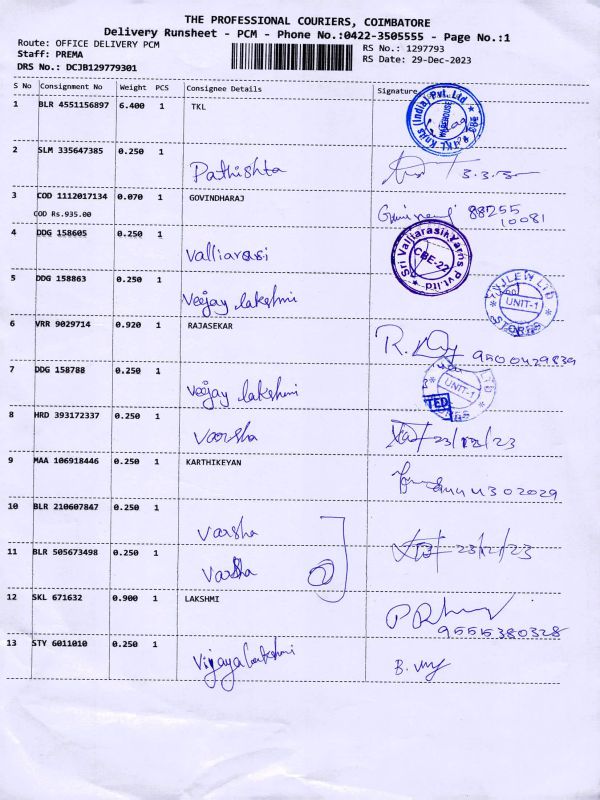 THE PROFESSIONAL COURIERS, COIMBATORE
Delivery Runsheet - PCM - Phone No.:0422-3505555 - Page No.:1
Route: OFFICE DELIVERY PCM
Staff: PREMA
DRS No.: DCJB129779301
RS No.: 1297793
RS Date: 29-Dec-2023
S No Consignment No Weight PCS Consignee Details Signature
1 BLR 4551156897 6.400 1 TKL
2 SLM 335647385 0.250 1 Pathishta
3 COD 1112017134 0.070 1 GOVINDHARAJ 88255
COD Rs.935.00 10081
4 DDG 158605 0.250 1 Valliarasi
Sri Valliarasi Yarns Pvt.Ltd CBE-22
5 DDG 158863 0.250 1 Veejay lakshmi
UNIT-1
STORES
6 VRR 9029714 0.920 1 RAJASEKAR
7 DDG 158788 0.250 1 Veejay lakshmi
UNIT-1
8 HRD 393172337 0.250 1 Varsha 23/12/23
9 MAA 106918446 0.250 1 KARTHIKEYAN
10 BLR 210607847 0.250 1 Varsha
11 BLR 505673498 0.250 1 Varsha 23/12/23
12 SKL 671632 0.900 1 LAKSHMI
13 STY 6011010 0.250 1 Vijayalakshmi